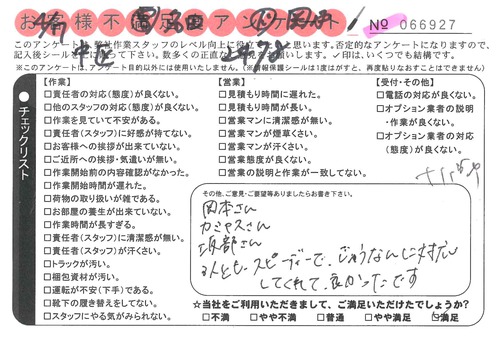 お客様不満足アンケート
No 066927
このアンケートは、弊社作業スタッフのレベル向上に役立て いと思います。否定的なアンケートになりますので、
記入後シール て 下さい。多数くの正直な お願いします。✓印は、いくつでも結構です。
※このアンケートは、アンケート目的以外には使用いたしません。 報保護シールは1度はがすと、再度貼りなおすことはできません)
チェックリスト
【作業】
□責任者の対応(態度)が良くない。
□他のスタッフの対応(態度)が良くない。
□作業を見ていて不安がある。
□責任者(スタッフ)に好感が持てない。
□お客様への挨拶が出来ていない。
□ご近所への挨拶・気遣いが無い。
□作業開始前の内容確認がなかった。
□作業開始時間が遅れた。
□荷物の取り扱いが雑である。
□お部屋の養生が出来ていない。
□作業時間が長すぎる。
□責任者(スタッフ)に清潔感が無い。
□責任者(スタッフ)が汗くさい。
□トラックが汚い。
□梱包資材が汚い。
□運転が不安(下手)である。
□靴下の履き替えをしてない。
□スタッフにやる気がみられない。
【営業】
□見積もりが時間に遅れた。
□見積もり時間が長い。
□営業マンに清潔感が無い。
□営業マンが煙草くさい。
□営業マンが汗くさい。
□営業態度が良くない。
□営業の説明と作業が一致してない。
【受付・その他】
□電話の対応が良くない。
□オプション業者の説明
・作業が良くない。
□オプション業者の対応
(態度)が良くない。
その他、ご意見・ご要望等ありましたらお書き下さい。
岡本さん
カミヤスさん
坂部さん
3人とも、スピーディーで、じゅうなんに対応
してくれて良かったです
☆当社をご利用いただきまして、ご満足いただけたでしょうか?
□不満 □やや不満 □普通 □やや満足 ☑満足